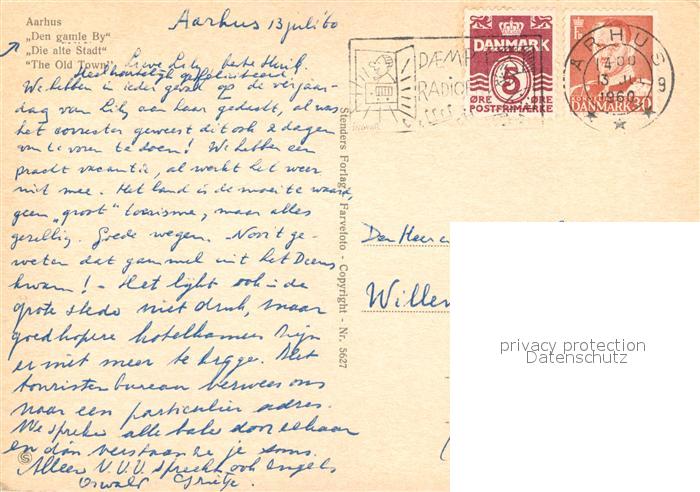 Aarhus
„Den gamle By"
„Die alte Stadt"
"The Old Town"
Aarhus 13 juli '60
Lieve Lily, beste Henk.
Heel hartelijk gefeliciteerd!
We hebben in ieder geval op de verjaar-
dag van Lily aan haar gedacht, al was
het correcter geweest dit ook 2 dagen
van te voren te doen! We hebben een
pracht vacantie, al werkt het weer
niet mee. Het land is de moeite waard,
geen „groot" toerisme, maar alles
gezellig. Goede wegen. Nooit ge-
weten dat gammel uit het Deens
kwam! - Het lijkt ook in de
grote steden niet druk, maar
goedkopere hotelkamers zijn
er niet meer te krijgen. Het
touristenbureau verwees ons
naar een particulier adres.
We spreken alle talen door elkaar
en dan verstaan ze je soms.
Alleen V.V.V. spreekt ook Engels
Oswald Grietje.
Stenders Forlag - Farvefoto - Copyright - Nr. 5627
DÆMP
RADIO
DANMARK
5
ØRE ØRE
POSTFRIMÆRKE
DANMARK 30
ARHUS
14 00
13. 7.
1960
9
Den Heer en
Willem
privacy protection
Datenschutz